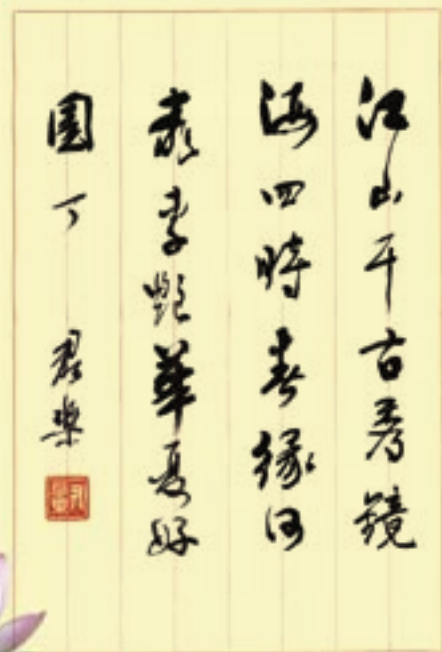 江山千古秀鏡
海四時春緣何
桃李艷華夏好
園丁 君樂